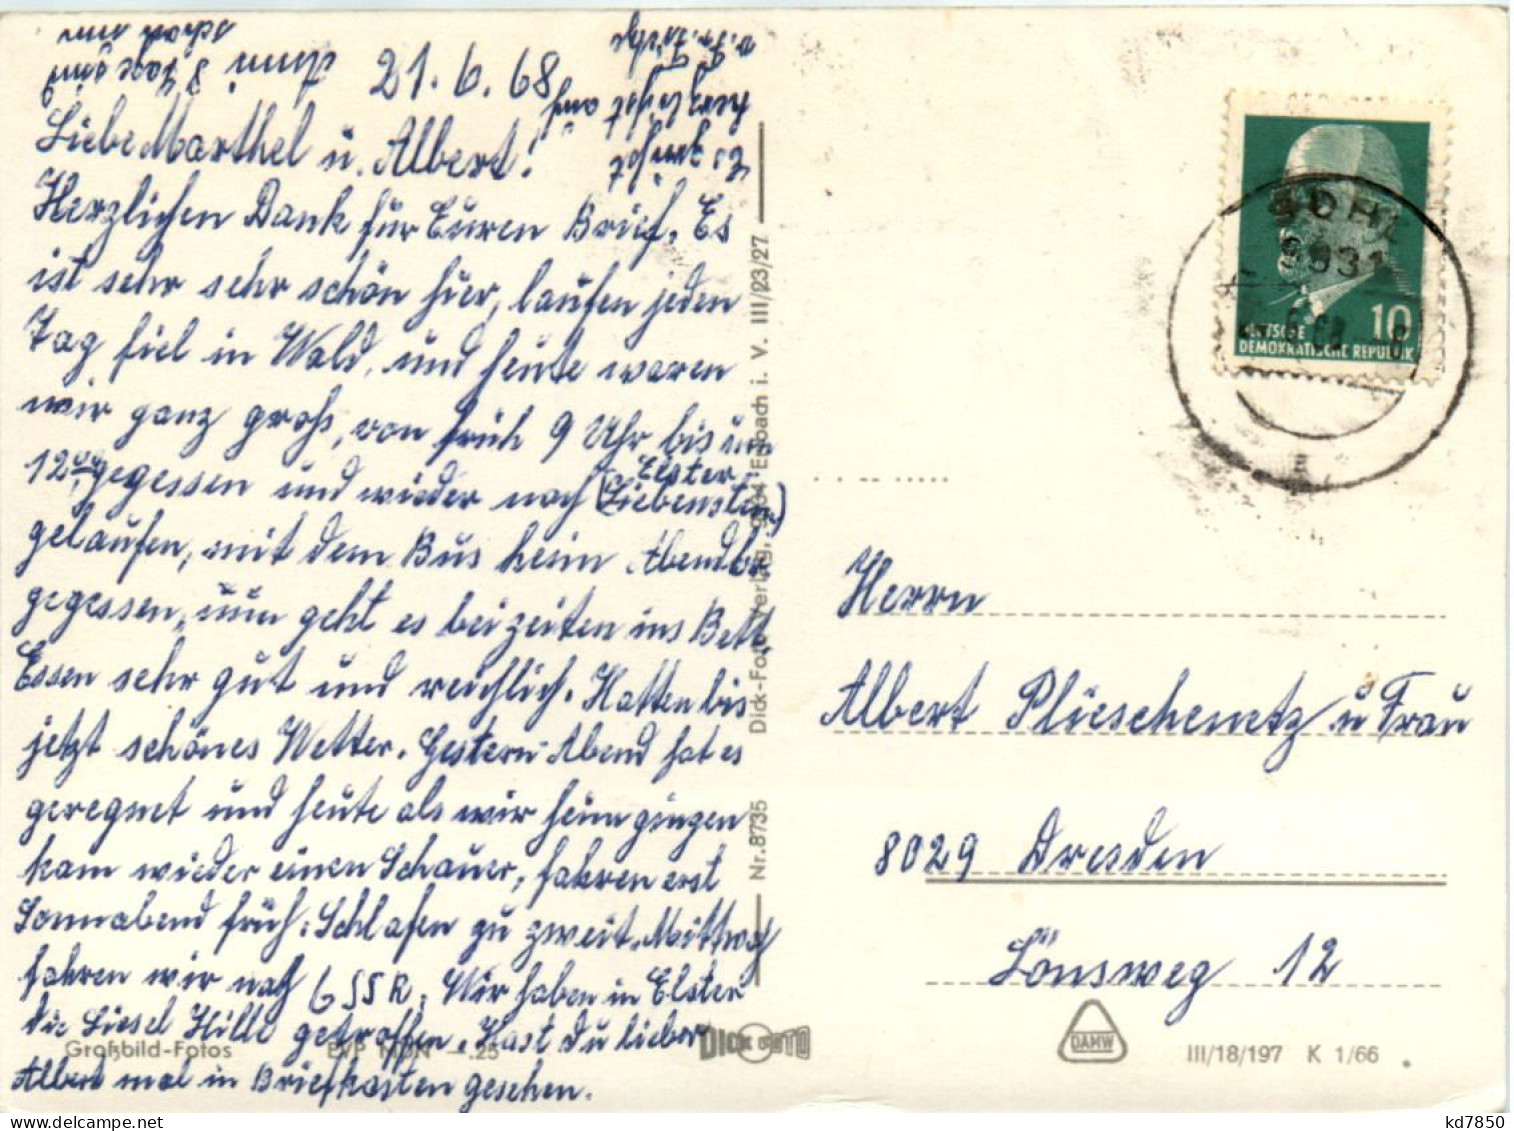 21.6.68
Liebe Marthel u. Albert!
Herzlichen Dank für Euren Brief. Es
ist sehr sehr schön hier, laufen jeden
Tag fiel in Wald, und heute waren
wir ganz groß, von früh 9 Uhr bis um
12⁰⁰, gegessen und wieder nach (Elster
Liebenstein)
gelaufen, mit dem Bus heim Abendbr.
gegessen, nun geht es beizeiten ins Bett.
Essen sehr gut und reichlich. Hatten bis
jetzt schönes Wetter. Gestern Abend hat es
geregnet und heute als wir heim gingen
kam wieder einen Schauer, fahren erst
Sonnabend früh. Schlafen zu zweit. Mittwoch
fahren wir nach ČSSR. Wir haben in Elster
die Liesel Hille getroffen. Hast du lieber
Albert mal in Briefkasten gesehen.
8 Tage sind
schon um
Es grüßt
herzlichst
Nr. 8735 Dick-Foto-Verlag, 9934 Erlbach i. V. III/23/27
Großbild-Fotos EVP MDN -.25
DICK FOTO
10
DEUTSCHE
DEMOKRATISCHE REPUBLIK
SOHL
9931
Herrn
Albert Plüeschenetz u Frau
8029 Dresden
Lönsweg 12
DAMW
III/18/197 K 1/66
kd7850